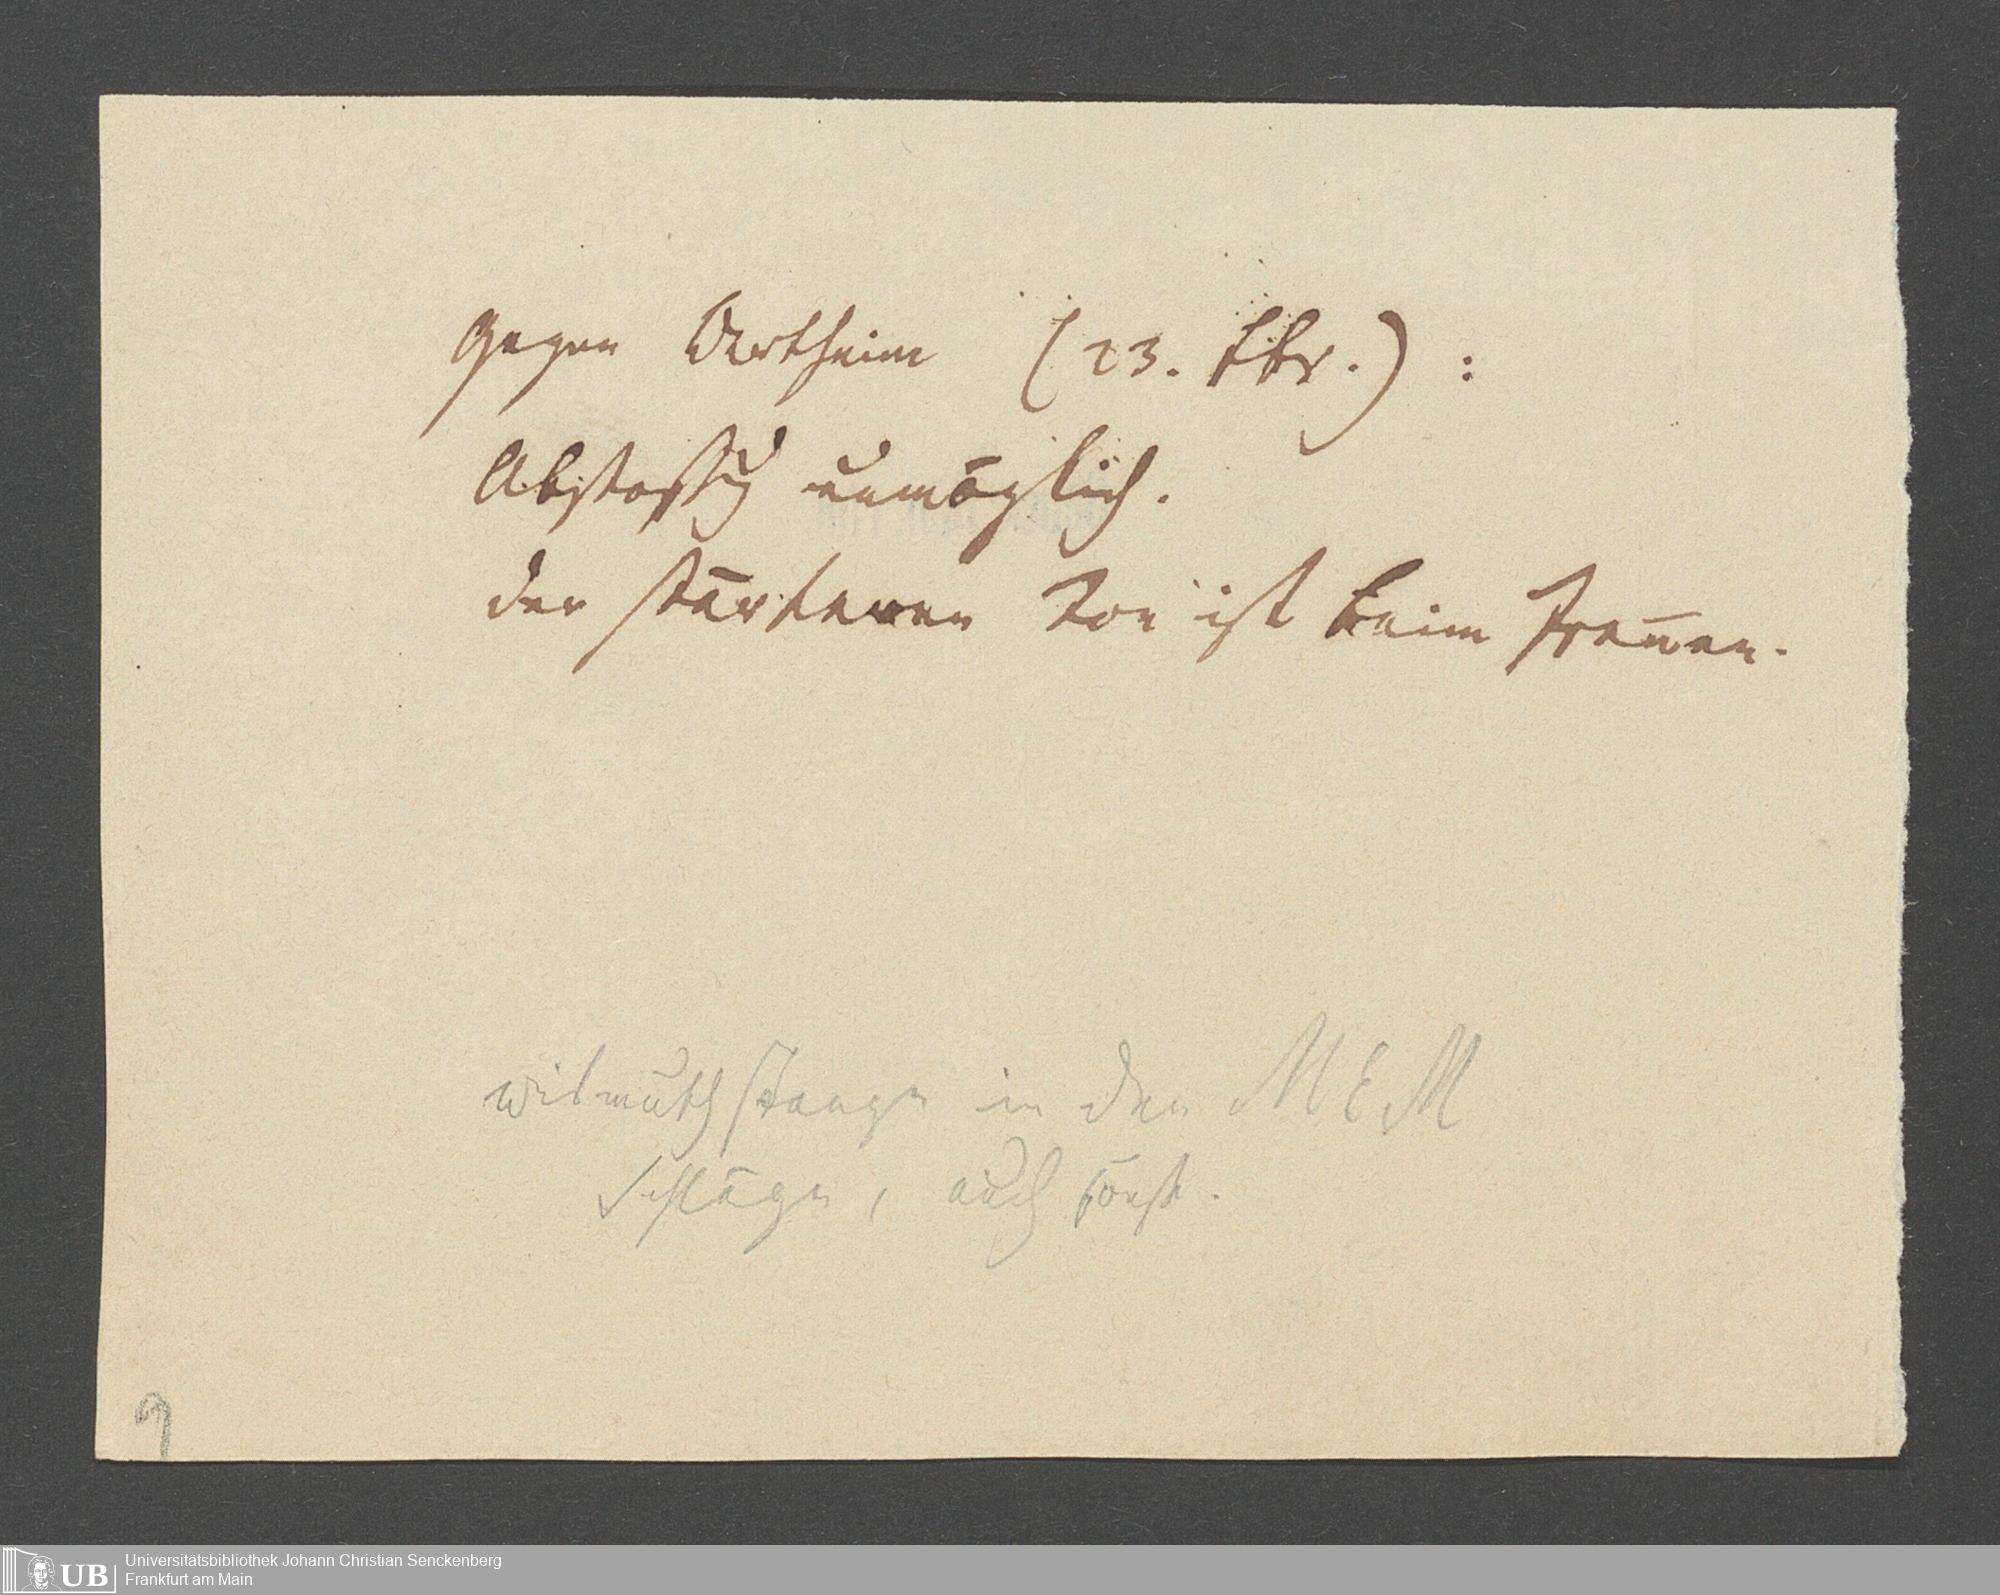 Gegen Wertheim (23. Fbr.) :
Abstossung unmöglich.
der stärkeren Ton ist beim Trennen.
Wismuthstange in den MEM
Schläge, auch sonst.
9
UB
Universitätsbibliothek Johann Christian Senckenberg
Frankfurt am Main